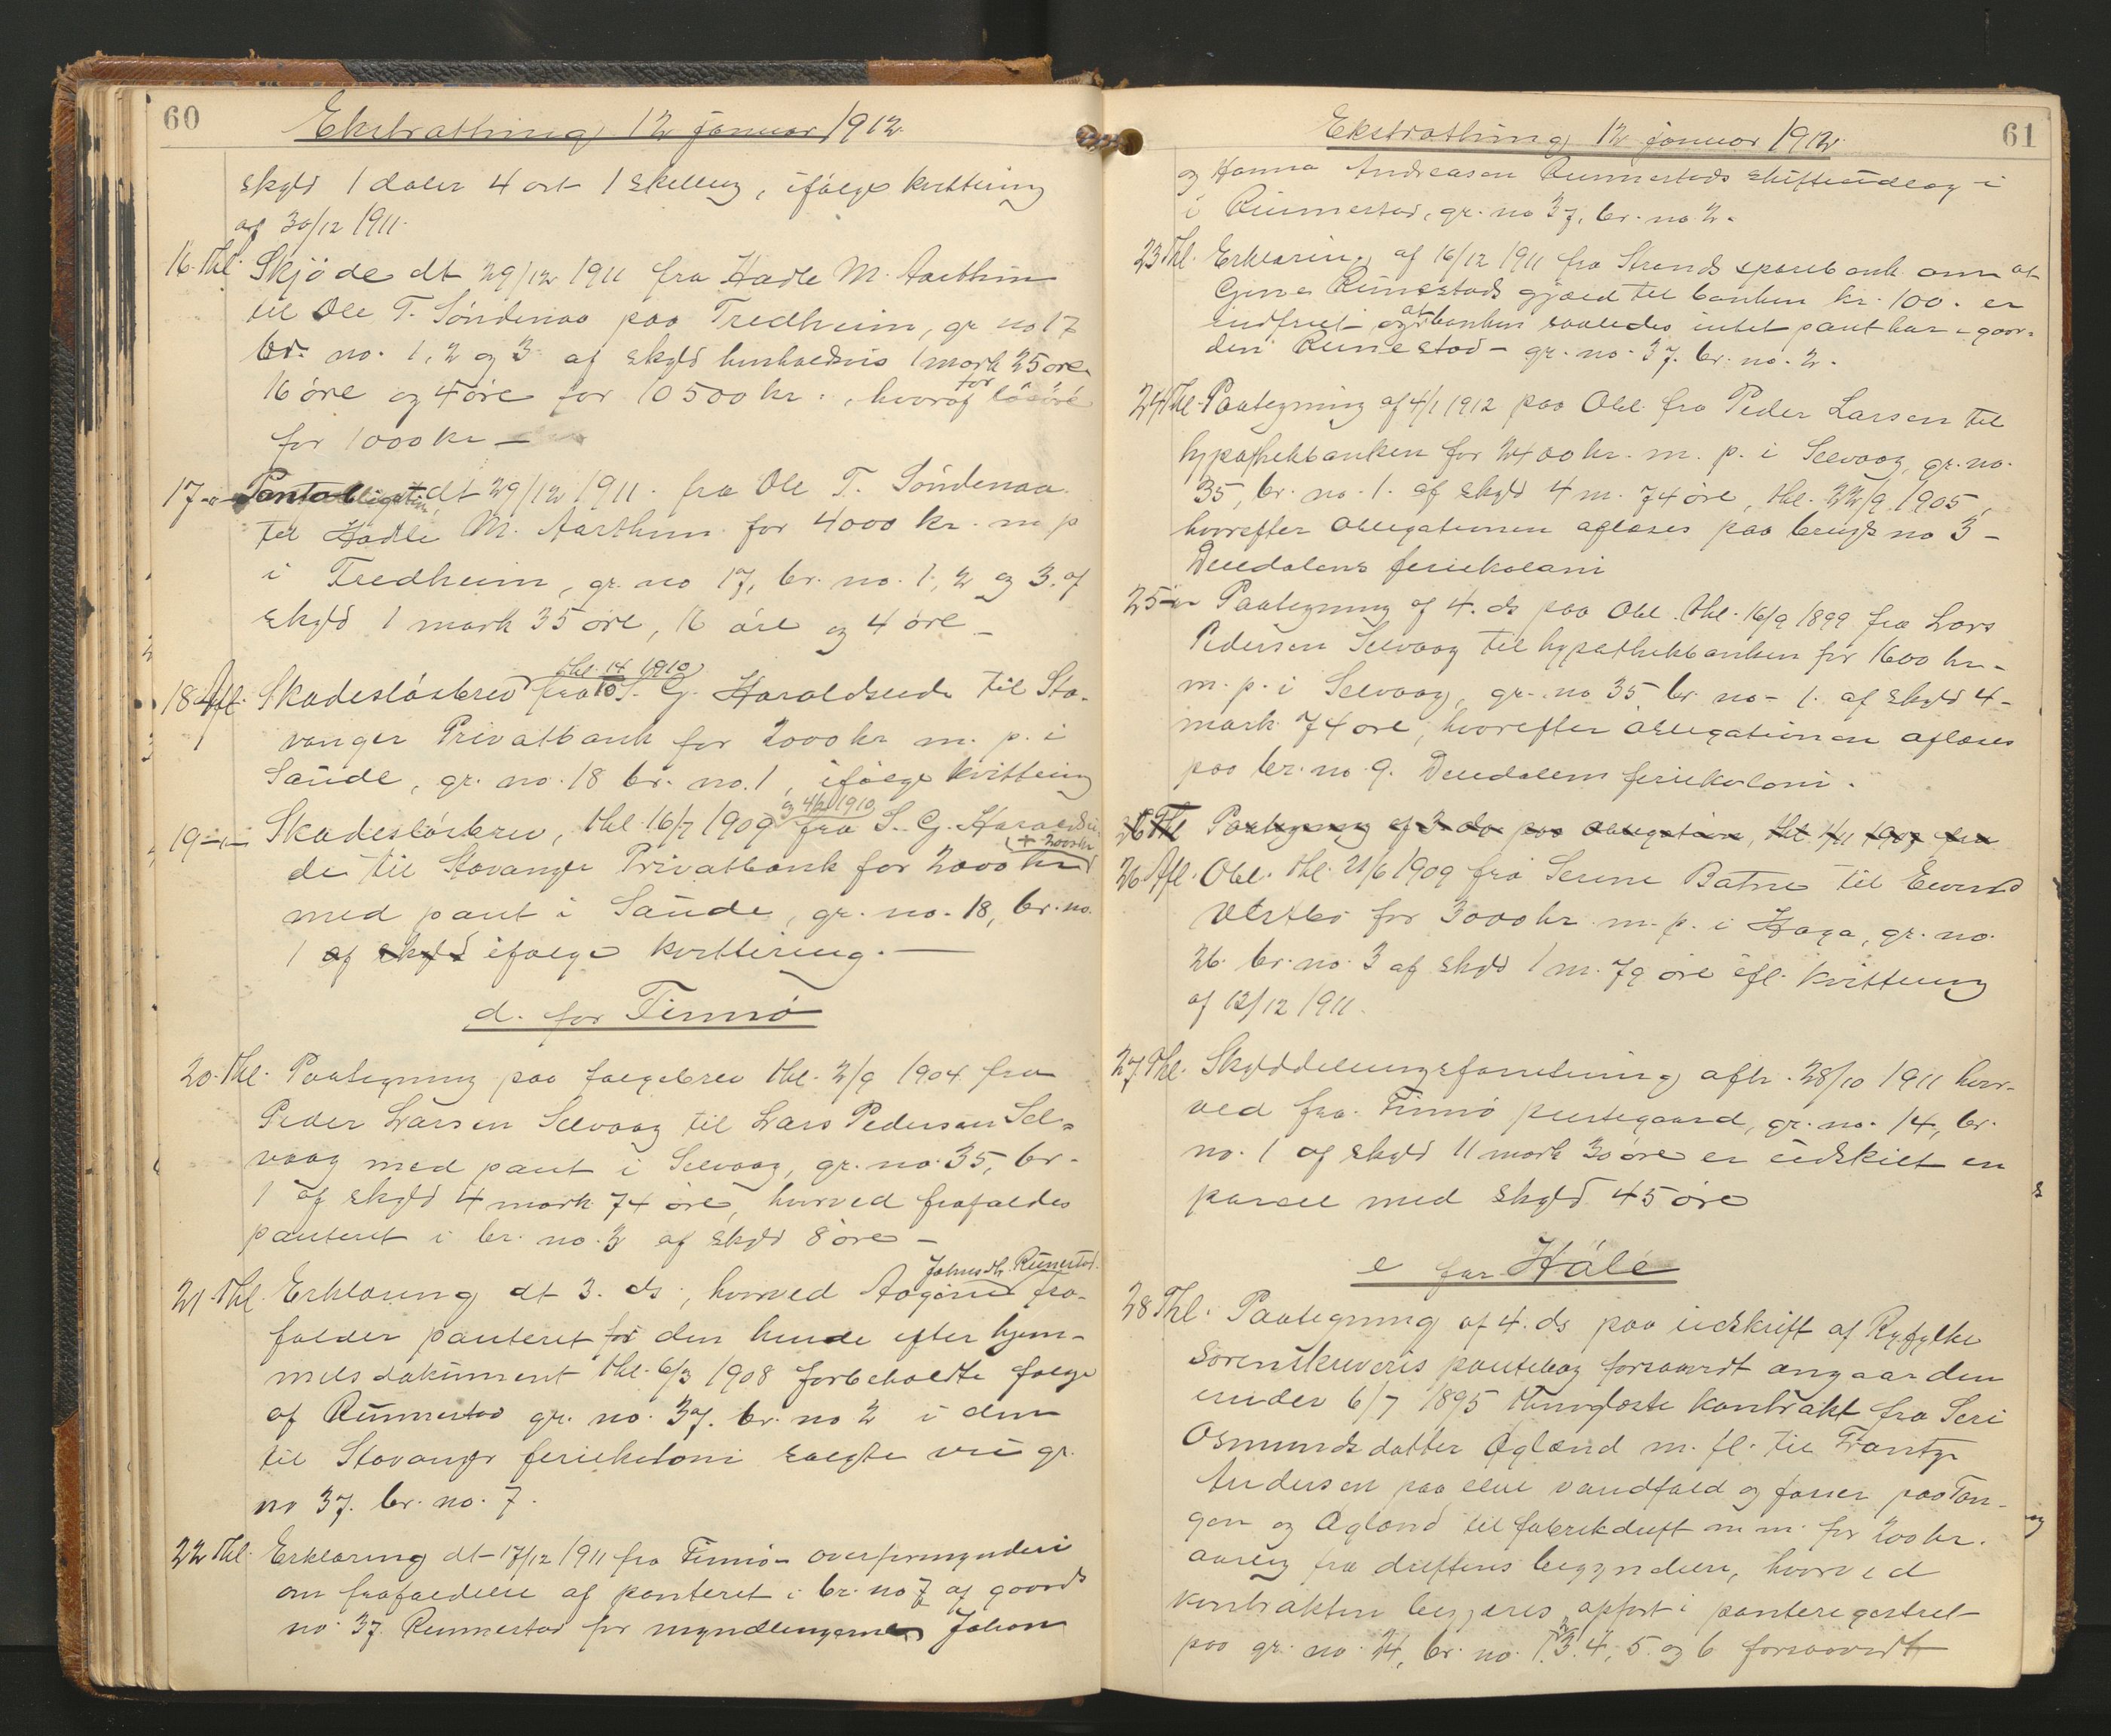 60
Ekstrathing 12 januar 1912.
skyld 1 daler 4 ort 1 skilling, ifølge kvittering
af 30/12 1911.
16. Thl. Skjøde dt 29/12 1911 fra Hadle M. Aarthun
til Ole T. Søndenaa paa Tredheim, gr no 17
br. no. 1, 2 og 3 af skyld henholdsvis 1 mark 35 øre,
16 øre og 4 øre for 10500 kr., hvoraf for løsøre
for 1000 kr —
17 -"- Pantobligation, dt 29/12 1911. fra Ole T. Søndenaa
til Hadle M. Aarthun for 4000 kr. m p
i Tredheim, gr. no 17, br. no. 1, 2 og 3. af
skyld 1 mark 35 øre, 16 øre og 4 øre —
18 Afl. Skadesløsbrev thl. 14/10 1910 fra S. G. Haraldseide til Sta-
vanger Privatbank for 2000 kr m. p. i
Saude, gr. no. 18 br. no. 1, ifølge kvittering
19 -"- Skadesløsbrev, thl. 16/7 1909 og 4/2 1910 fra S. G. Haraldsei-
de til Stavanger Privatbank for 2000 kr + 2000 kr
med pant i Saude, gr. no. 18, br. no.
1 af skyld ifølge kvittering. —
d. for Finnø
20. Thl. Paategning paa følgebrev thl. 2/9 1904 fra
Peder Larsen Selvaag til Lars Pedersen Sel-
vaag med pant i Selvaag, gr. no. 35, br.
1 af skyld 4 mark 74 øre, hvorved frafaldes
panteret i br. no. 3 af skyld 8 øre —
21 Thl. Erklæring dt 3. ds., hvorved Aagine Johnsdtr. Runestad fra-
falder panteret for den hende efter hjem-
melsdokument thl. 6/3 1908 forbeholdte følge
af Runnestad gr. no. 37. br. no 2 i den
til Stavanger feriekoloni solgte vei gr.
no 37. br. no. 7.
22 Thl. Erklæring dt 17/12 1911 fra Finnø overformynderi
om frafaldelse af panteret i br. no 7 af gaards
no 37 Runnestad for myndlingerne Johan
61
Ekstrathing 12 januar 1912.
og Hanna Andreasen Runnestads skifteudlæg i
i Runnestad, gr. no 37, br. no. 2.
23 Thl. Erklæring af 16/12 1911 fra Strands sparebank om at
Gine Runestads gjæld til banken kr. 100. er
indfriet og at banken saaledes intet pant har i gaar-
den Runestad — gr. no. 37. br. no. 2.
24 Thl. Paategning af 4/1 1912 paa Obl. fra Peder Larsen til
hypothekbanken for 2400 kr. m. p. i Selvaag, gr. no.
35, br. no. 1. af skyld 4 m. 74 øre, thl. 22/9 1905,
hvorefter obligationen aflæses paa brugs no 3 —
Duedalens feriekoloni
25 -"- Paategning af 4. ds paa Obl. thl. 16/9 1899 fra Lars
Pedersen Selvaag til hypothekbanken for 1600 kr.
m. p. i Selvaag, gr. no 35 br. no. 1. af skyld 4
mark 74 øre, hvorefter obligationen aflæses
paa br. no. 9. Duedalens feriekoloni.
26 Thl Paategning af 3 ds paa obligation, thl. 1/11 1907 fra
26 Afl. Obl. thl. 21/6 1909 fra Serine Batne til Eivind
Vestbø for 3000 kr m. p. i Haga, gr. no.
26. br. no. 3 af skyld 1 m. 79 øre ifl. kvittering
af 12/12 1911.
27 Thl. Skylddelingsforretning afh. 28/10 1911 hvor-
ved fra Finnø prestegaard, gr. no. 14, br.
no. 1 af skyld 11 mark 30 øre er udskilt en
parcel med skyld 45 øre
e for Hæle
28 Thl. Paategning af 4. ds paa udskrift af Ryfylke
Sorenskriveris pantebog forsaavidt angaar den
under 6/7 1895 thinglæste kontrakt fra Seri
Osmundsdatter Øgland m. fl. til Frantz
Andersen paa elve vandfald og fosser paa Tan-
gen og Øgland til fabrikdrift m m. for 200 kr.
aarlig fra driftens begyndelse, hvorved
kontrakten begjæres opført i panteregistret
paa gr. no 14, br. no. 1, 2, 3. 4, 5. og 6 forsaavidt